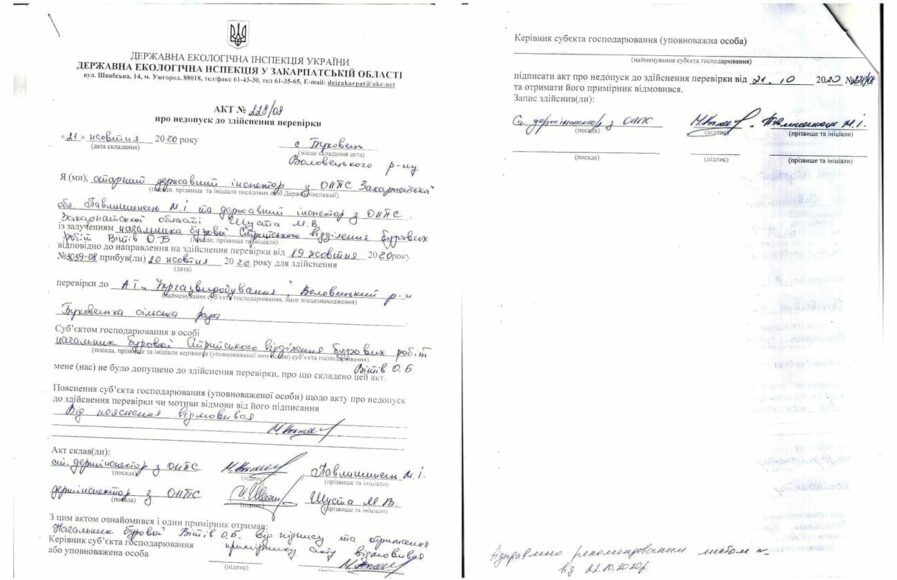 ДЕРЖАВНА ЕКОЛОГІЧНА ІНСПЕКЦІЯ УКРАЇНИ
ДЕРЖАВНА ЕКОЛОГІЧНА ІНСПЕКЦІЯ У ЗАКАРПАТСЬКІЙ ОБЛАСТІ
вул. Швабська, 14, м. Ужгород, 88018, тел/факс 61-43-30, тел 61-35-65, E-mail: deizakarpat@ukr.net
АКТ № 229/08
про недопуск до здійснення перевірки
«21» жовтня 2020 року
(дата складання)
с Буковець
(місце складання акта)
Воловецького р-ну
Я (ми), старший державний інспектор з ОНПС Закарпатської
(посади, прізвища та ініціали посадових осіб Держекоінспекції)
обл. Павлишинець М.І та державний інспектор з ОНПС
Закарпатської області Шуста М.В.
із залученням начальника бурової Стрийського відділення бурових
робіт Вітів О.Б
(посади, прізвища та ініціали)
відповідно до направлення на здійснення перевірки від 19 жовтня 2020 року
№3039-08 прибув(ли) 20 жовтня 2020 року для здійснення
(дата)
перевірки до АТ „Укргазвидобування", Воловецький р-н
(найменування суб'єкта господарювання, його місцезнаходження)
Буковецька сільська рада
Суб'єктом господарювання в особі
начальник бурової Стрийського відділення бурових робіт
(посада, прізвище та ініціали керівника (уповноваженої ним особи) суб'єкта господарювання)
Вітів О.Б
мене (нас) не було допущено до здійснення перевірки, про що складено цей акт.
Пояснення суб'єкта господарювання (уповноваженої особи) щодо акту про недопуск
до здійснення перевірки чи мотиви відмови від його підписання
Від пояснення відмовився
Акт склав(ли):
ст. держінспектор з ОНПС Павлишинець М.І.
(посада) (підпис) (прізвище та ініціали)
держінспектор з ОНПС Шуста М.В.
(посада) (підпис) (прізвище та ініціали)
З цим актом ознайомився і один примірник отримав:
Начальник бурової Вітів О.Б. від підпису та отримання
Керівник суб'єкта господарювання примірнику акту відмовився
або уповноважена особа
(підпис) (прізвище та ініціали)
Керівник суб'єкта господарювання (уповноважена особа)
(найменування суб'єкта господарювання)
підписати акт про недопуск до здійснення перевірки від 21.10 2020 №229/08
та отримати його примірник відмовився.
Запис здійснив(ли):
Ст. держінспектор з ОНПС Павлишинець М.І.
(посада) (підпис) (прізвище та ініціали)
(посада) (підпис) (прізвище та ініціали)
Відправлено рекомендованим листом
від 22.10.2020р.